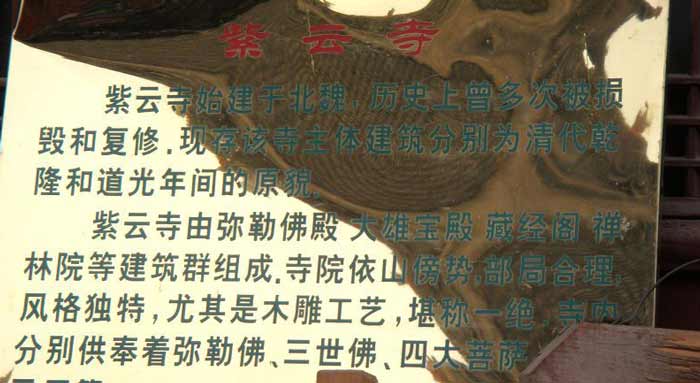 紫云寺
紫云寺始建于北魏，历史上曾多次被损
毁和复修.现存该寺主体建筑分别为清代乾
隆和道光年间的原貌.
紫云寺由弥勒佛殿 大雄宝殿 藏经阁 禅
林院等建筑群组成.寺院依山傍势.部局合理,
风格独特,尤其是木雕工艺,堪称一绝.寺内
分别供奉着弥勒佛、三世佛、四大菩萨